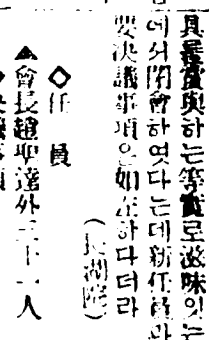 具를賞與하는等實로滋味잇는
에서閉會하엿다는데新任員과
要决議事項은如左하다더라
(長湖院)
◇任員
▲會長趙聖達外三十一人